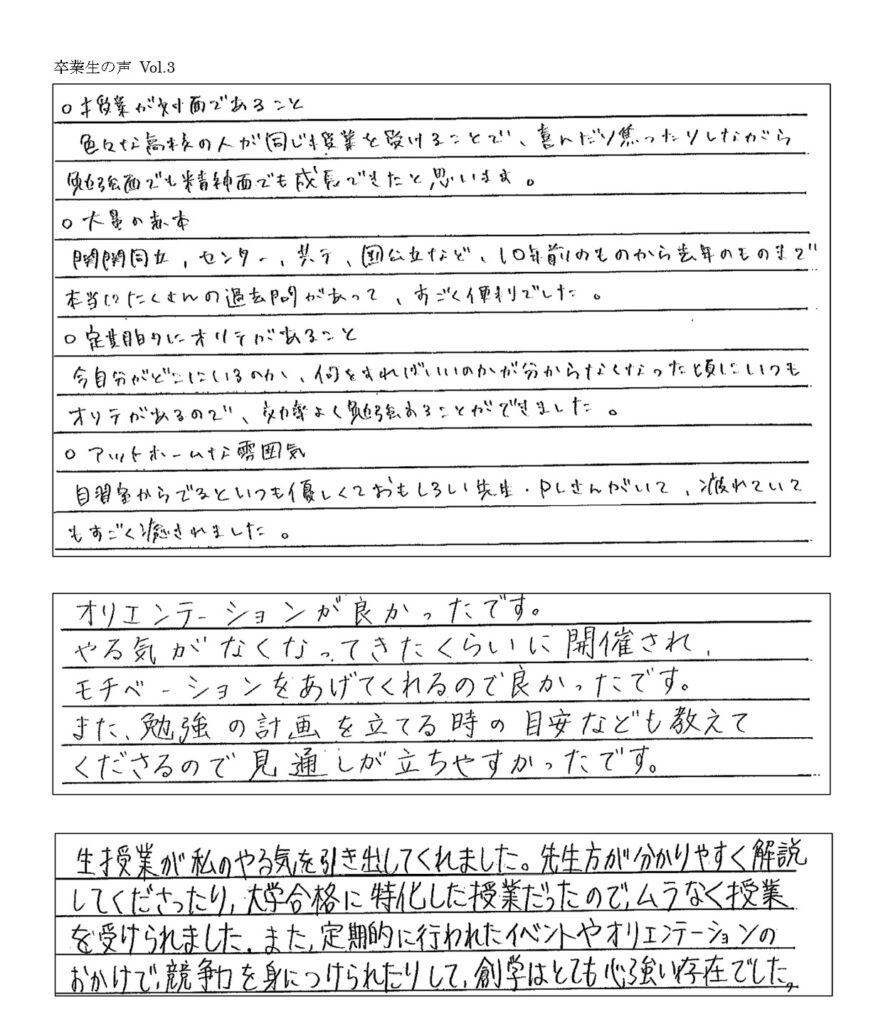 卒業生の声 Vol.3
○授業が対面であること
色々な高校の人が同じ授業を受けることで、喜んだり焦ったりしながら
勉強面でも精神面でも成長できたと思います。
○大量の赤本
関関同立、センター、共テ、国公立など、10年前のものから去年のものまで
本当にたくさんの過去問があって、すごく便利でした。
○定期的にオリテがあること
今自分がどこにいるのか、何をすればいいのかが分からなくなった頃にいつも
オリテがあるので、効率よく勉強することができました。
○アットホームな雰囲気
自習室からでるといつも優しくておもしろい先生・PLさんがいて、疲れていて
もすごく癒されました。
オリエンテーションが良かったです。
やる気がなくなってきたくらいに開催され、
モチベーションをあげてくれるので良かったです。
また、勉強の計画を立てる時の目安なども教えて
くださるので見通しが立ちやすかったです。
生授業が私のやる気を引き出してくれました。先生方が分かりやすく解説
してくださったり、大学合格に特化した授業だったので、ムラなく授業
を受けられました。また、定期的に行われたイベントやオリエンテーションの
おかげで、競争力を身につけられたりして、創学はとても心強い存在でした。